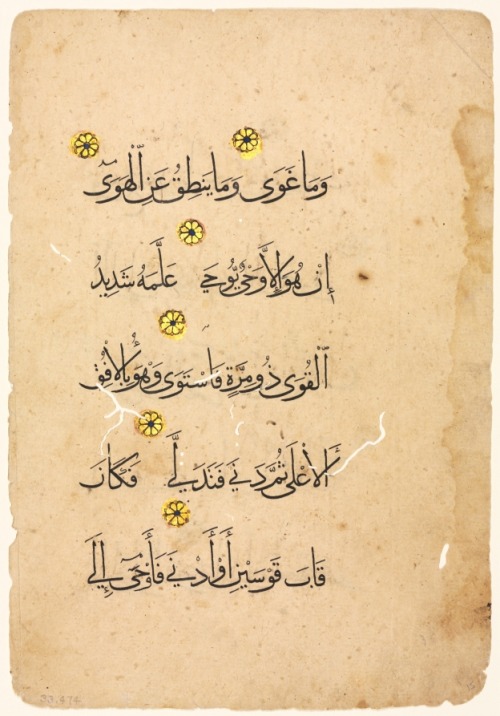 وَمَا غَوَى وَمَا يَنطِقُ عَنِ ٱلْهَوَىٰ
إِنْ هُوَ إِلَّا وَحْىٌ يُوحَى عَلَّمَهُ شَدِيدُ
ٱلْقُوَى ذُو مِرَّةٍ فَاسْتَوَى وَهُوَ بِالْأُفُقِ
ٱلْأَعْلَى ثُمَّ دَنَى فَتَدَلَّى فَكَانَ
قَابَ قَوْسَيْنِ أَوْ أَدْنَى فَأَوْحَىٰ إِلَى
53.474